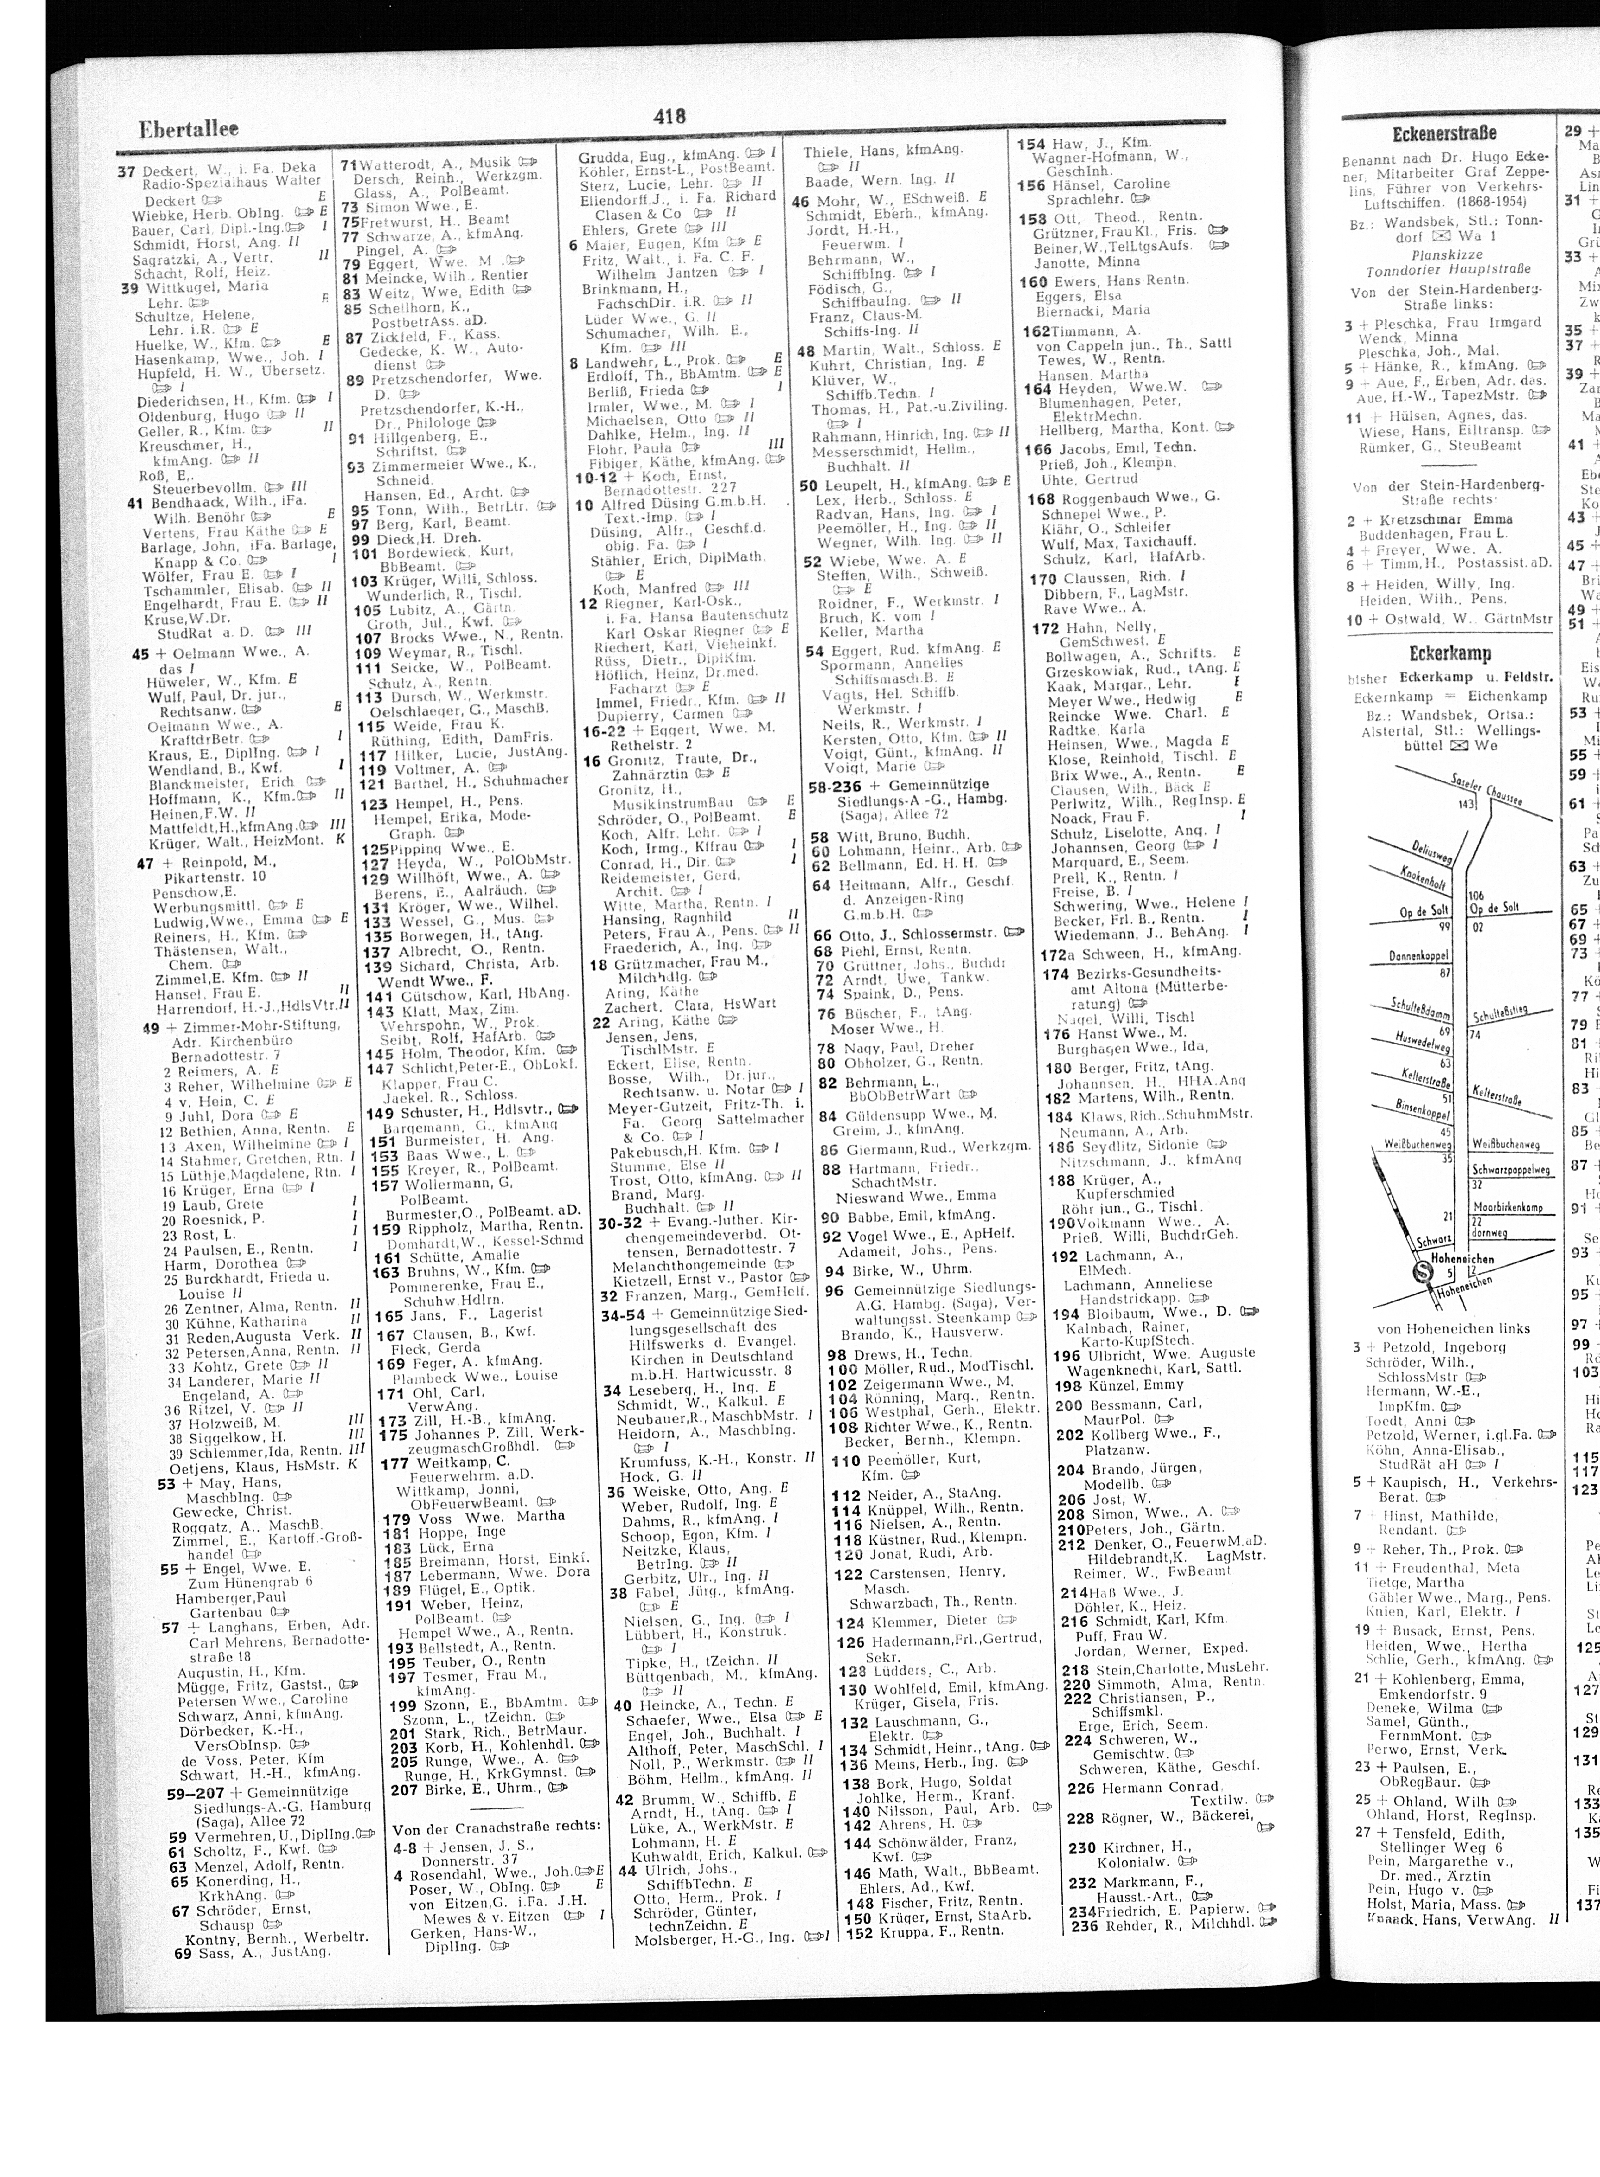 Ebertallee
418
37 Deckert, W., i. Fa. Deka
Radio-Spezialhaus Walter
Deckert E
Wiebke, Herb. ObIng. E
Bauer, Carl, Dipl.-Ing. I
Schmidt, Horst, Ang. II
Sagratzki, A., Vertr. II
Schacht, Rolf, Heiz.
39 Wittkugel, Maria
Lehr. E
Schultze, Helene,
Lehr. i.R. E
Huelke, W., Kfm. E
Hasenkamp, Wwe., Joh. I
Hupfeld, H. W., Übersetz.
I
Diederichsen, H., Kfm. I
Oldenburg, Hugo II
Geller, R., Kfm. II
Kreuschmer, H.,
kfmAng. II
Roß, E.,
Steuerbevollm. III
41 Bendhaack, Wilh., iFa.
Wilh. Benöhr E
Vertens, Frau Käthe E
Barlage, John, iFa. Barlage,
Knapp & Co. I
Wölfer, Frau E. I
Tschammler, Elisab. II
Engelhardt, Frau E. II
Kruse, W.Dr.
StudRat a. D. III
45 + Oelmann Wwe., A.
das I
Hüweler, W., Kfm. E
Wulf, Paul, Dr. jur.,
Rechtsanw. E
Oelmann Wwe., A.
KraftdrBetr. I
Kraus, E., DiplIng. I
Wendland, B., Kwf. I
Blanckmeister, Erich
Hoffmann, K., Kfm. II
Heinen, F.W. II
Mattfeldt, H., kfmAng. III
Krüger, Walt., HeizMont. K
47 + Reinpold, M.,
Pikartenstr. 10
Penschow, E.
Werbungsmittl. E
Ludwig, Wwe., Emma E
Reiners, H., Kfm.
Thästensen, Walt.,
Chem.
Zimmel, E. Kfm. II
Hansel, Frau E. II
Harrendorf, H.-J., HdlsVtr. II
49 + Zimmer-Mohr-Stiftung,
Adr. Kirchenbüro
Bernadottestr. 7
2 Reimers, A. E
3 Reher, Wilhelmine E
4 v. Hein, C. E
9 Juhl, Dora E
12 Bethien, Anna, Rentn. E
13 Axen, Wilhelmine I
14 Stahmer, Gretchen, Rtn. I
15 Lüthje, Magdalene, Rtn. I
16 Krüger, Erna I
19 Laub, Grete I
20 Roesnick, P. I
23 Rost, L. I
24 Paulsen, E., Rentn. I
Harm, Dorothea
25 Burckhardt, Frieda u.
Louise II
26 Zentner, Alma, Rentn. II
30 Kühne, Katharina II
31 Reden, Augusta Verk. II
32 Petersen, Anna, Rentn. II
33 Kohtz, Grete II
34 Landerer, Marie II
Engeland, A.
36 Ritzel, V. II
37 Holzweiß, M. III
38 Siggelkow, H. III
39 Schlemmer, Ida, Rentn. III
Oetjens, Klaus, HsMstr. K
53 + May, Hans,
MaschbIng.
Gewecke, Christ.
Roggatz, A., MaschB.
Zimmel, E., Kartoff.-Groß-
handel
55 + Engel, Wwe. E.
Zum Hünengrab 6
Hamberger, Paul
Gartenbau
57 + Langhans, Erben, Adr.
Carl Mehrens, Bernadotte-
straße 18
Augustin, H., Kfm.
Mügge, Fritz, Gastst.,
Petersen Wwe., Caroline
Schwarz, Anni, kfmAng.
Dörbecker, K.-H.,
VersObInsp.
de Voss, Peter, Kfm
Schwart, H.-H., kfmAng.
59–207 + Gemeinnützige
Siedlungs-A.-G. Hamburg
(Saga), Allee 72
59 Vermehren, U., DiplIng.
61 Scholtz, F., Kwf.
63 Menzel, Adolf, Rentn.
65 Konerding, H.,
KrkhAng.
67 Schröder, Ernst,
Schausp
Kontny, Bernh., Werbeltr.
69 Sass, A., JustAng.
71 Watterodt, A., Musik
Dersch, Reinh., Werkzgm.
Glass, A., PolBeamt.
73 Simon Wwe., E.
75 Fretwurst, H., Beamt
77 Schwarze, A., kfmAng.
Pingel, A.
79 Eggert, Wwe. M.
81 Meincke, Wilh., Rentier
83 Weitz, Wwe, Edith
85 Schellhorn, K.,
PostbetrAss. aD.
87 Zickfeld, F., Kass.
Gedecke, K. W., Auto-
dienst
89 Pretzschendorfer, Wwe.
D.
Pretzschendorfer, K.-H.,
Dr., Philologe
91 Hillgenberg, E.,
Schriftst.
93 Zimmermeier Wwe., K.,
Schneid.
Hansen, Ed., Archt.
95 Tonn, Wilh., BetrLtr.
97 Berg, Karl, Beamt.
99 Dieck, H. Dreh.
101 Bordewieck, Kurt,
BbBeamt.
103 Krüger, Willi, Schloss.
Wunderlich, R., Tischl.
105 Lubitz, A., Gärtn.
Groth, Jul., Kwf.
107 Brocks Wwe., N., Rentn.
109 Weymar, R., Tischl.
111 Seicke, W., PolBeamt.
Schulz, A., Rentn.
113 Dursch, W., Werkmstr.
Oelschlaeger, G., MaschB.
115 Weide, Frau K.
Rüthing, Edith, DamFris.
117 Hilker, Lucie, JustAng.
119 Voltmer, A.
121 Barthel, H., Schuhmacher
123 Hempel, H., Pens.
Hempel, Erika, Mode-
Graph.
125 Pipping Wwe., E.
127 Heyda, W., PolObMstr.
129 Willhöft, Wwe., A.
Berens, E., Aalräuch.
131 Kröger, Wwe., Wilhel.
133 Wessel, G., Mus.
135 Borwegen, H., tAng.
137 Albrecht, O., Rentn.
139 Sichard, Christa, Arb.
Wendt Wwe., F.
141 Gütschow, Karl, HbAng.
143 Klatt, Max, Zim.
Wehrspohn, W., Prok.
Seibt, Rolf, HafArb.
145 Holm, Theodor, Kfm.
147 Schlicht, Peter-E., ObLokf.
Klapper, Frau C.
Jaekel, R., Schloss.
149 Schuster, H., Hdlsvtr.,
Bargemann, G., kfmAng
151 Burmeister, H. Ang.
153 Baas Wwe., L.
155 Kreyer, R., PolBeamt.
157 Wollermann, G,
PolBeamt.
Burmester, O., PolBeamt. aD.
159 Rippholz, Martha, Rentn.
Domhardt, W., Kessel-Schmd
161 Schütte, Amalie
163 Bruhns, W., Kfm.
Pommerenke, Frau E.,
Schuhw.Hdlrn.
165 Jans, F., Lagerist
167 Clausen, B., Kwf.
Fleck, Gerda
169 Feger, A. kfmAng.
Plambeck Wwe., Louise
171 Ohl, Carl,
VerwAng.
173 Zill, H.-B., kfmAng.
175 Johannes P. Zill, Werk-
zeugmaschGroßhdl.
177 Weitkamp, C.
Feuerwehrm. a.D.
Wittkamp, Jonni,
ObFeuerwBeamt.
179 Voss Wwe. Martha
181 Hoppe, Inge
183 Lück, Erna
185 Breimann, Horst, Einkf.
187 Lebermann, Wwe. Dora
189 Flügel, E., Optik.
191 Weber, Heinz,
PolBeamt.
Hempel Wwe., A., Rentn.
193 Bellstedt, A., Rentn.
195 Teuber, O., Rentn
197 Tesmer, Frau M.,
kfmAng.
199 Szonn, E., BbAmtm.
Szonn, L., tZeichn.
201 Stark, Rich., BetrMaur.
203 Korb, H., Kohlenhdl.
205 Runge, Wwe., A.
Runge, H., KrkGymnst.
207 Birke, E., Uhrm.,
Von der Cranachstraße rechts:
4-8 + Jensen, J. S.,
Donnerstr. 37
4 Rosendahl, Wwe., Joh. E
Poser, W., ObIng. E
von Eitzen, G. i.Fa. J.H.
Mewes & v. Eitzen I
Gerken, Hans-W.,
DiplIng.
Grudda, Eug., kfmAng. I
Köhler, Ernst-L., PostBeamt.
Sterz, Lucie, Lehr. II
Ellendorff, J., i. Fa. Richard
Clasen & Co II
Ehlers, Grete III
6 Maier, Eugen, Kfm E
Fritz, Walt., i. Fa. C. F.
Wilhelm Jantzen I
Brinkmann, H.,
FachschDir. i.R. II
Lüder Wwe., G. II
Schumacher, Wilh. E.,
Kfm. III
8 Landwehr, L., Prok. E
Erdloff, Th., BbAmtm. E
Berliß, Frieda I
Irmler, Wwe., M. I
Michaelsen, Otto II
Dahlke, Helm., Ing. II
Flohr, Paula III
Fibiger, Käthe, kfmAng.
10-12 + Koch, Ernst,
Bernadottestr. 227
10 Alfred Düsing G.m.b.H.
Text.-Imp. I
Düsing, Alfr., Geschf.d.
obig. Fa. I
Stähler, Erich, DiplMath.
E
Koch, Manfred III
12 Riegner, Karl-Osk.,
i. Fa. Hansa Bautenschutz
Karl Oskar Riegner E
Riechert, Karl, Vieheinkf.
Rüss, Dietr., DiplKfm.
Höflich, Heinz, Dr.med.
Facharzt E
Immel, Friedr., Kfm. II
Dupierry, Carmen
16-22 + Eggert, Wwe. M.
Rethelstr. 2
16 Gronitz, Traute, Dr.,
Zahnärztin E
Gronitz, H.,
MusikInstrumBau E
Schröder, O., PolBeamt. E
Koch, Alfr. Lehr. I
Koch, Irmg., Klfrau I
Conrad, H., Dir. I
Reidemeister, Gerd,
Archit. I
Witte, Martha, Rentn. I
Hansing, Ragnhild II
Peters, Frau A., Pens. II
Fraederich, A., Ing.
18 Grützmacher, Frau M.,
Milchhdlg.
Aring, Käthe
Zachert, Clara, HsWart
22 Aring, Käthe
Jensen, Jens,
TischlMstr. E
Eckert, Elise, Rentn.
Bosse, Wilh., Dr.jur.,
Rechtsanw. u. Notar I
Meyer-Gutzeit, Fritz-Th. i.
Fa. Georg Sattelmacher
& Co. I
Pakebusch, H. Kfm. I
Stumme, Else II
Trost, Otto, kfmAng. II
Brand, Marg.
Buchhalt. II
30-32 + Evang.-luther. Kir-
chengemeindeverbd. Ot-
tensen, Bernadottestr. 7
Melanchthongemeinde
Kietzell, Ernst v., Pastor
32 Franzen, Marg., GemHelf.
34-54 + Gemeinnützige Sied-
lungsgesellschaft des
Hilfswerks d. Evangel.
Kirchen in Deutschland
m.b.H. Hartwicusstr. 8
34 Leseberg, H., Ing. E
Schmidt, W., Kalkul. E
Neubauer, R., MaschbMstr. I
Heidorn, A., MaschbIng.
I
Krumfuss, K.-H., Konstr. II
Hock, G. II
36 Weiske, Otto, Ang. E
Weber, Rudolf, Ing. E
Dahms, R., kfmAng. I
Schoop, Egon, Kfm. I
Neitzke, Klaus,
BetrIng. II
Gerbitz, Ulr., Ing. II
38 Fabel, Jürg., kfmAng.
E
Nielsen, G., Ing. I
Lübbert, H., Konstruk.
I
Tipke, H., tZeichn. II
Büttgenbach, M., kfmAng.
II
40 Heincke, A., Techn. E
Schaefer, Wwe., Elsa E
Engel, Joh., Buchhalt. I
Althoff, Peter, MaschSchl. I
Noll, P., Werkmstr. II
Böhm, Hellm., kfmAng. II
42 Brumm, W., Schiffb. E
Arndt, H., tAng. I
Lüke, A., WerkMstr. E
Lohmann, H. E
Kuhwaldt, Erich, Kalkul.
44 Ulrich, Johs.,
SchiffbTechn. E
Otto, Herm., Prok. I
Schröder, Günter,
technZeichn. E
Molsberger, H.-G., Ing. I
Thiele, Hans, kfmAng.
II
Baade, Wern. Ing. II
46 Mohr, W., ESchweiß. E
Schmidt, Eberh., kfmAng.
Jordt, H.-H.,
Feuerwm. I
Behrmann, W.,
SchiffbIng. I
Födisch, G.,
SchiffbauIng. II
Franz, Claus-M.
Schiffs-Ing. II
48 Martin, Walt., Schloss. E
Kuhrt, Christian, Ing. E
Klüver, W.,
Schiffb.Techn. I
Thomas, H., Pat.-u.Ziviling.
I
Rahmann, Hinrich, Ing. II
Messerschmidt, Hellm.,
Buchhalt. II
50 Leupelt, H., kfmAng. E
Lex, Herb., Schloss. E
Radvan, Hans, Ing. I
Peemöller, H., Ing. II
Wegner, Wilh. Ing. II
52 Wiebe, Wwe. A. E
Steffen, Wilh., Schweiß.
E
Roidner, F., Werkmstr. I
Bruch, K. vom I
Keller, Martha
54 Eggert, Rud. kfmAng. E
Spormann, Annelies
Schiffsmasch.B. E
Vagts, Hel. Schiffb.
Werkmstr. I
Neils, R., Werkmstr. I
Kersten, Otto, Kfm. II
Voigt, Günt., kfmAng. II
Voigt, Marie
58-236 + Gemeinnützige
Siedlungs-A.-G., Hambg.
(Saga), Allee 72
58 Witt, Bruno, Buchh.
60 Lohmann, Heinr., Arb.
62 Bellmann, Ed. H. H.
64 Heitmann, Alfr., Geschf.
d. Anzeigen-Ring
G.m.b.H.
66 Otto, J., Schlossermstr.
68 Piehl, Ernst, Rentn.
70 Grüttner, Johs., Buchdr
72 Arndt, Uwe, Tankw.
74 Spaink, D., Pens.
76 Büscher, F., tAng.
Moser Wwe., H.
78 Nagy, Paul, Dreher
80 Obholzer, G., Rentn.
82 Behrmann, L.,
BbObBetrWart
84 Güldensupp Wwe., M.
Greim, J., kfmAng.
86 Giermann, Rud., Werkzgm.
88 Hartmann, Friedr.,
SchachtMstr.
Nieswand Wwe., Emma
90 Babbe, Emil, kfmAng.
92 Vogel Wwe., E., ApHelf.
Adameit, Johs., Pens.
94 Birke, W., Uhrm.
96 Gemeinnützige Siedlungs-
A.G. Hambg. (Saga), Ver-
waltungsst. Steenkamp
Brando, K., Hausverw.
98 Drews, H., Techn.
100 Möller, Rud., ModTischl.
102 Zeigermann Wwe., M.
104 Rönning, Marg., Rentn.
106 Westphal, Gerh., Elektr.
108 Richter Wwe., K., Rentn.
Becker, Bernh., Klempn.
110 Peemöller, Kurt,
Kfm.
112 Neider, A., StaAng.
114 Knüppel, Wilh., Rentn.
116 Nielsen, A., Rentn.
118 Küstner, Rud., Klempn.
120 Jonat, Rudi, Arb.
122 Carstensen, Henry,
Masch.
Schwarzbach, Th., Rentn.
124 Klemmer, Dieter
126 Hadermann, Frl., Gertrud,
Sekr.
128 Lüdders, C., Arb.
130 Wohlfeld, Emil, kfmAng.
Krüger, Gisela, Fris.
132 Lauschmann, G.,
Elektr.
134 Schmidt, Heinr., tAng.
136 Mems, Herb., Ing.
138 Bork, Hugo, Soldat
Johlke, Herm., Kranf.
140 Nilsson, Paul, Arb.
142 Ahrens, H.
144 Schönwälder, Franz,
Kwf.
146 Math, Walt., BbBeamt.
Ehlers, Ad., Kwf.
148 Fischer, Fritz, Rentn.
150 Krüger, Ernst, StaArb.
152 Kruppa, F., Rentn.
154 Haw, J., Kfm.
Wagner-Hofmann, W.,
GeschInh.
156 Hänsel, Caroline
Sprachlehr.
158 Ott, Theod., Rentn.
Grützner, Frau Kl., Fris.
Beiner, W., TelLtgsAufs.
Janotte, Minna
160 Ewers, Hans Rentn.
Eggers, Elsa
Biernacki, Maria
162 Timmann, A.
von Cappeln jun., Th., Sattl
Tewes, W., Rentn.
Hansen, Martha
164 Heyden, Wwe.W.
Blumenhagen, Peter,
ElektrMechn.
Hellberg, Martha, Kont.
166 Jacobs, Emil, Techn.
Prieß, Joh., Klempn.
Uhte, Gertrud
168 Roggenbauch Wwe., G.
Schnepel Wwe., P.
Klähr, O., Schleifer
Wulf, Max, Taxichauff.
Schulz, Karl, HafArb.
170 Claussen, Rich. I
Dibbern, F., LagMstr.
Rave Wwe., A.
172 Hahn, Nelly,
GemSchwest. E
Bollwagen, A., Schrifts. E
Grzeskowiak, Rud., tAng. E
Kaak, Margar., Lehr. E
Meyer Wwe., Hedwig E
Reincke Wwe. Charl. E
Radtke, Karla
Heinsen, Wwe., Magda E
Klose, Reinhold, Tischl. E
Brix Wwe., A., Rentn. E
Clausen, Wilh., Bäck E
Perlwitz, Wilh., RegInsp. E
Noack, Frau F. I
Schulz, Liselotte, Ang. I
Johannsen, Georg I
Marquard, E., Seem.
Prell, K., Rentn. I
Freise, B. I
Schwering, Wwe., Helene I
Becker, Frl. B., Rentn. I
Wiedemann, J., BehAng. I
172a Schween, H., kfmAng.
174 Bezirks-Gesundheits-
amt Altona (Mütterbe-
ratung)
Nagel, Willi, Tischl
176 Hanst Wwe., M.
Burghagen Wwe., Ida,
180 Berger, Fritz, tAng.
Johannsen, H., HHA.Ang
182 Martens, Wilh., Rentn.
184 Klaws, Rich., SchuhmMstr.
Neumann, A., Arb.
186 Seydlitz, Sidonie
Nitzschmann, J., kfmAng
188 Krüger, A.,
Kupferschmied
Röhr jun., G., Tischl.
190 Volkmann Wwe., A.
Prieß, Willi, BuchdrGeh.
192 Lachmann, A.,
ElMech.
Lachmann, Anneliese
Handstrickapp.
194 Bloibaum, Wwe., D.
Kalnbach, Rainer,
Karto-KupfStech.
196 Ulbricht, Wwe. Auguste
Wagenknecht, Karl, Sattl.
198 Künzel, Emmy
200 Bessmann, Carl,
MaurPol.
202 Kollberg Wwe., F.,
Platzanw.
204 Brando, Jürgen,
Modellb.
206 Jost, W.
208 Simon, Wwe., A.
210 Peters, Joh., Gärtn.
212 Denker, O., FeuerwM.aD.
Hildebrandt, K. LagMstr.
Reimer, W., FwBeamt
214 Haß Wwe., J.
Döhler, K., Heiz.
216 Schmidt, Karl, Kfm.
Puff, Frau W.
Jordan, Werner, Exped.
218 Stein, Charlotte, MusLehr.
220 Simmoth, Alma, Rentn.
222 Christiansen, P.,
Schiffsmkl.
Erge, Erich, Seem.
224 Schweren, W.,
Gemischtw.
Schweren, Käthe, Geschf.
226 Hermann Conrad,
Textilw.
228 Rögner, W., Bäckerei,
230 Kirchner, H.,
Kolonialw.
232 Markmann, F.,
Hausst.-Art.,
234 Friedrich, E. Papierw.
236 Rehder, R., Milchhdl.
Eckenerstraße
Benannt nach Dr. Hugo Ecke-
ner, Mitarbeiter Graf Zeppe-
lins, Führer von Verkehrs-
Luftschiffen. (1868-1954)
Bz.: Wandsbek, Stl.: Tonn-
dorf Wa 1
Planskizze
Tonndorfer Hauptstraße
Von der Stein-Hardenberg-
Straße links:
3 + Pleschka, Frau Irmgard
Wenck, Minna
Pleschka, Joh., Mal.
5 + Hänke, R., kfmAng.
9 + Aue, F., Erben, Adr. das.
Aue, H.-W., TapezMstr.
11 + Hülsen, Agnes, das.
Wiese, Hans, Eiltransp.
Rümker, G., SteuBeamt
Von der Stein-Hardenberg-
Straße rechts:
2 + Kretzschmar Emma
Buddenhagen, Frau L.
4 + Freyer, Wwe. A.
6 + Timm, H., Postassist.aD.
8 + Heiden, Willy, Ing.
Heiden, Wilh., Pens.
10 + Ostwald, W., GärtnMstr
Eckerkamp
bisher Eckerkamp u. Feldstr.
Eckernkamp = Eichenkamp
Bz.: Wandsbek, Ortsa.:
Alstertal, Stl.: Wellings-
büttel We
Saseler Chaussee
143
Deliusweg
Knokenholt
106
Op de Solt
Op de Solt
99
02
Dannenkoppel
87
Schulteßdamm
Schulteßstieg
69
74
Huswedelweg
63
Kelterstraße
Kelterstraße
51
Binsenkoppel
45
Weißbuchenweg
Weißbuchenweg
35
Schwarzpappelweg
32
Maarbirkenkamp
21
22
Schwarz
dornweg
Hoheneichen
S
5
2
Hoheneichen
von Hoheneichen links
3 + Petzold, Ingeborg
Schröder, Wilh.,
SchlossMstr
Hermann, W.-E.,
ImpKfm.
Toedt, Anni
Petzold, Werner, i.gl.Fa.
Köhn, Anna-Elisab.,
StudRät aH I
5 + Kaupisch, H., Verkehrs-
Berat.
7 + Hinst, Mathilde,
Rendant.
9 + Reher, Th., Prok.
11 + Freudenthal, Meta
Tietge, Martha
Gäbler Wwe., Marg., Pens.
Knien, Karl, Elektr. I
19 + Busack, Ernst, Pens.
Heiden, Wwe., Hertha
Schlie, Gerh., kfmAng.
21 + Kohlenberg, Emma,
Emkendorfstr. 9
Deneke, Wilma
Samel, Günth.,
FernmMont.
Perwo, Ernst, Verk.
23 + Paulsen, E.,
ObRegBaur.
25 + Ohland, Wilh
Ohland, Horst, RegInsp.
27 + Tensfeld, Edith,
Stellinger Weg 6
Pein, Margarethe v.,
Dr. med., Ärztin
Pein, Hugo v.
Holst, Maria, Mass.
Knaack, Hans, VerwAng. II
29 +
31 +
33 +
35 +
37 +
39 +
41 +
43 +
45 +
47 +
49 +
51 +
53 +
55 +
59 +
61 +
63 +
65 +
67 +
69 +
73 +
77 +
79
81 +
83 +
85 +
87 +
91 +
93 +
95 +
97 +
99
103
115
117
123
125
127
129
131
133
135
137